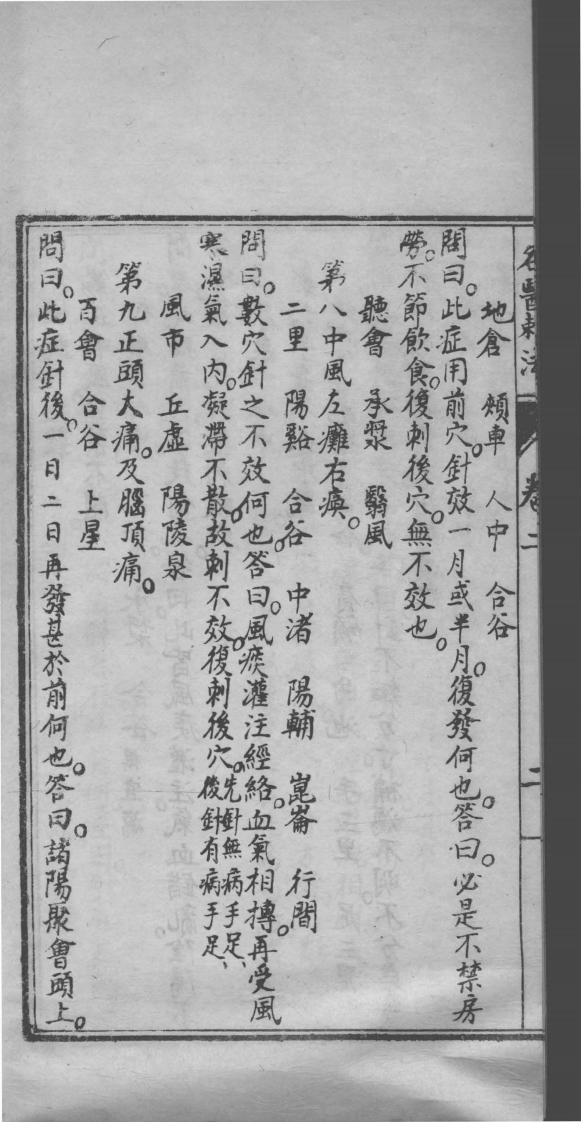 名醫刺法 卷二 二
地倉 頰車 人中 合谷
問曰。此症用前穴。針效一月或半月。復發何也。答曰。必是不禁房
勞。不節飲食。復刺後穴。無不效也。
聽會 承漿 翳風
第八中風左癱右瘓。
二里 陽谿 合谷 中渚 陽輔 崑崙 行間
問曰。數穴針之不效何也。答曰。風痰灌注經絡。血氣相搏。再受風
寒濕氣入內。凝滯不散。故刺不效。復刺後穴。先針無病手足、後針有病手足、
風市 丘虛 陽陵泉
第九正頭大痛。及腦頂痛。
百會 合谷 上星
問曰。此症針後。一日二日再發甚於前何也。答曰。諸陽聚會頭上。